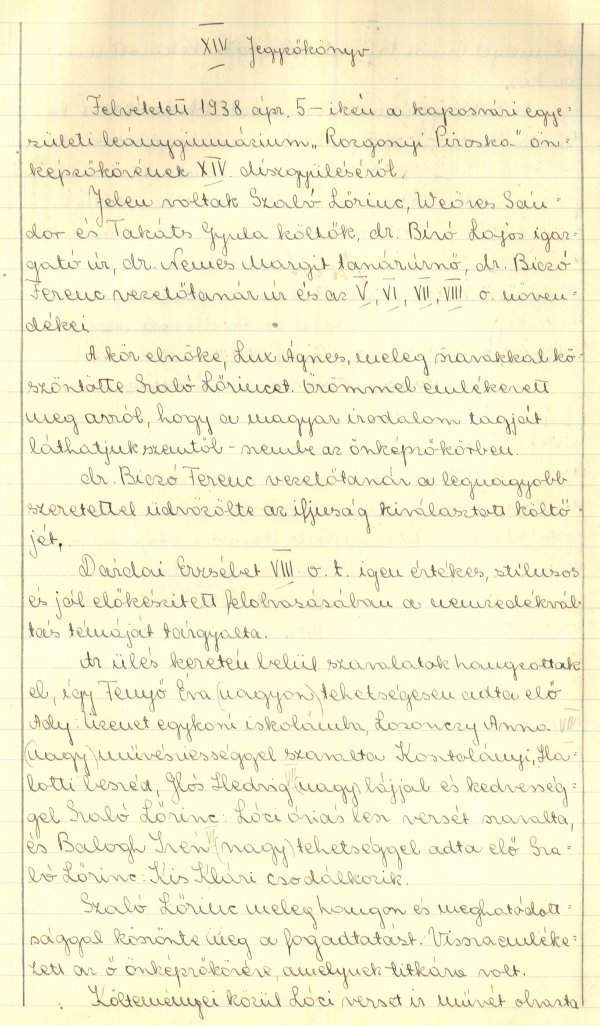 XIV. Jegyzőkönyv
Felvétetett 1938 ápr. 5-ikén a kaposvári egye-
sületi leánygimnázium „Rozgonyi Piroska" ön-
képzőkörének XIV. díszgyűléséről.
Jelen voltak Szabó Lőrinc, Weöres Sán-
dor és Takáts Gyula költők, dr. Bíró Lajos igaz-
gató úr, dr. Nemes Margit tanárúrnő, dr. Biczó
Ferenc vezetőtanár úr és az V, VI, VII, VIII o. növen-
dékei.
A kör elnöke, Lux Ágnes, meleg szavakkal kö-
szöntötte Szabó Lőrincet. Örömmel emlékezett
meg arról, hogy a magyar irodalom tagját
láthatjuk szemtől-szembe az önképzőkörben.
dr. Biczó Ferenc vezetőtanár a legnagyobb
szeretettel üdvözölte az ifjuság kiválasztott költő-
jét.
Dárdai Erzsébet VIII o. t. igen értékes, stílusos
és jól előkészített felolvasásában a nemzedékvál-
tás témáját tárgyalta.
Az ülés keretén belül szavalatok hangzottak
el, így Fenyő Éva (nagyon) tehetségesen adta elő
Ady: üzenet egykori iskolámba, Losonczy Anna VIII
(nagy) művésziességgel szavalta Kosztolányi, Ha-
lotti beszéd, Glós Hedvig VII (nagy) bájjal és kedvesség-
gel Szabó Lőrinc: Lóci óriás lesz versét szavalta,
és Balogh Irén VI (nagy) tehetséggel adta elő Sza-
bó Lőrinc: Kis Klári csodálkozik.
Szabó Lőrinc meleg hangon és meghatódott-
sággal köszönte meg a fogadtatást. Visszaemléke-
zett az ő önképzőkörére, amelynek titkára volt.
Költeményei közül Lóci verset ír művét olvasta